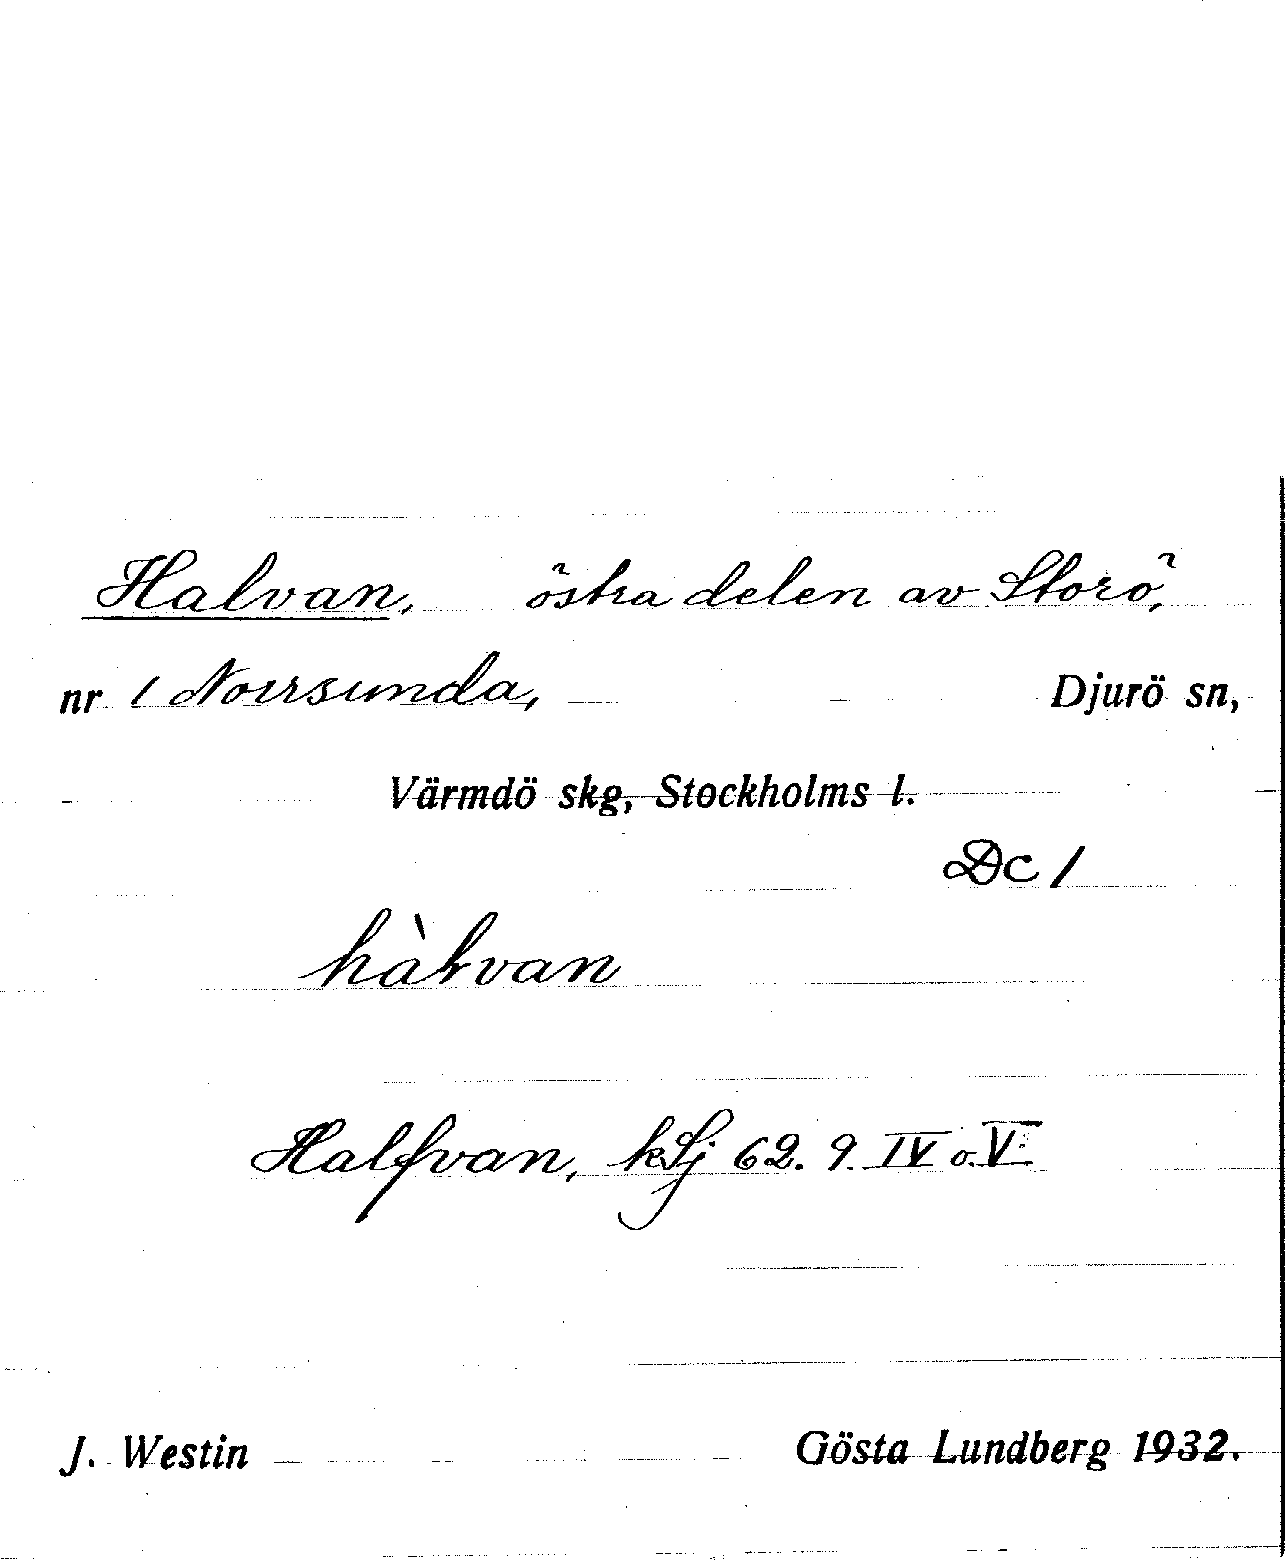 Halvan, östra delen av Storö,
nr 1 Norrsunda, Djurö sn,
Värmdö skg, Stockholms l.
Dc 1
hàlvan
Halfvan, kSj 62. 9. IV o. V.
J. Westin Gösta Lundberg 1932.